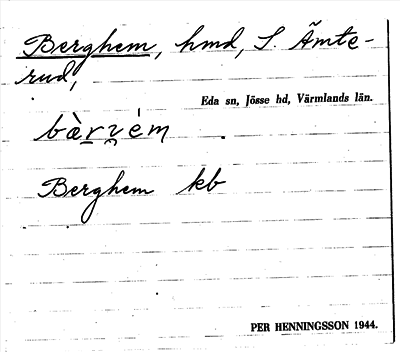 Berghem, hmd, S. Ämte-
rud,
Eda sn, Jösse hd, Värmlands län.
Berghem kb
PER HENNINGSSON 1944.